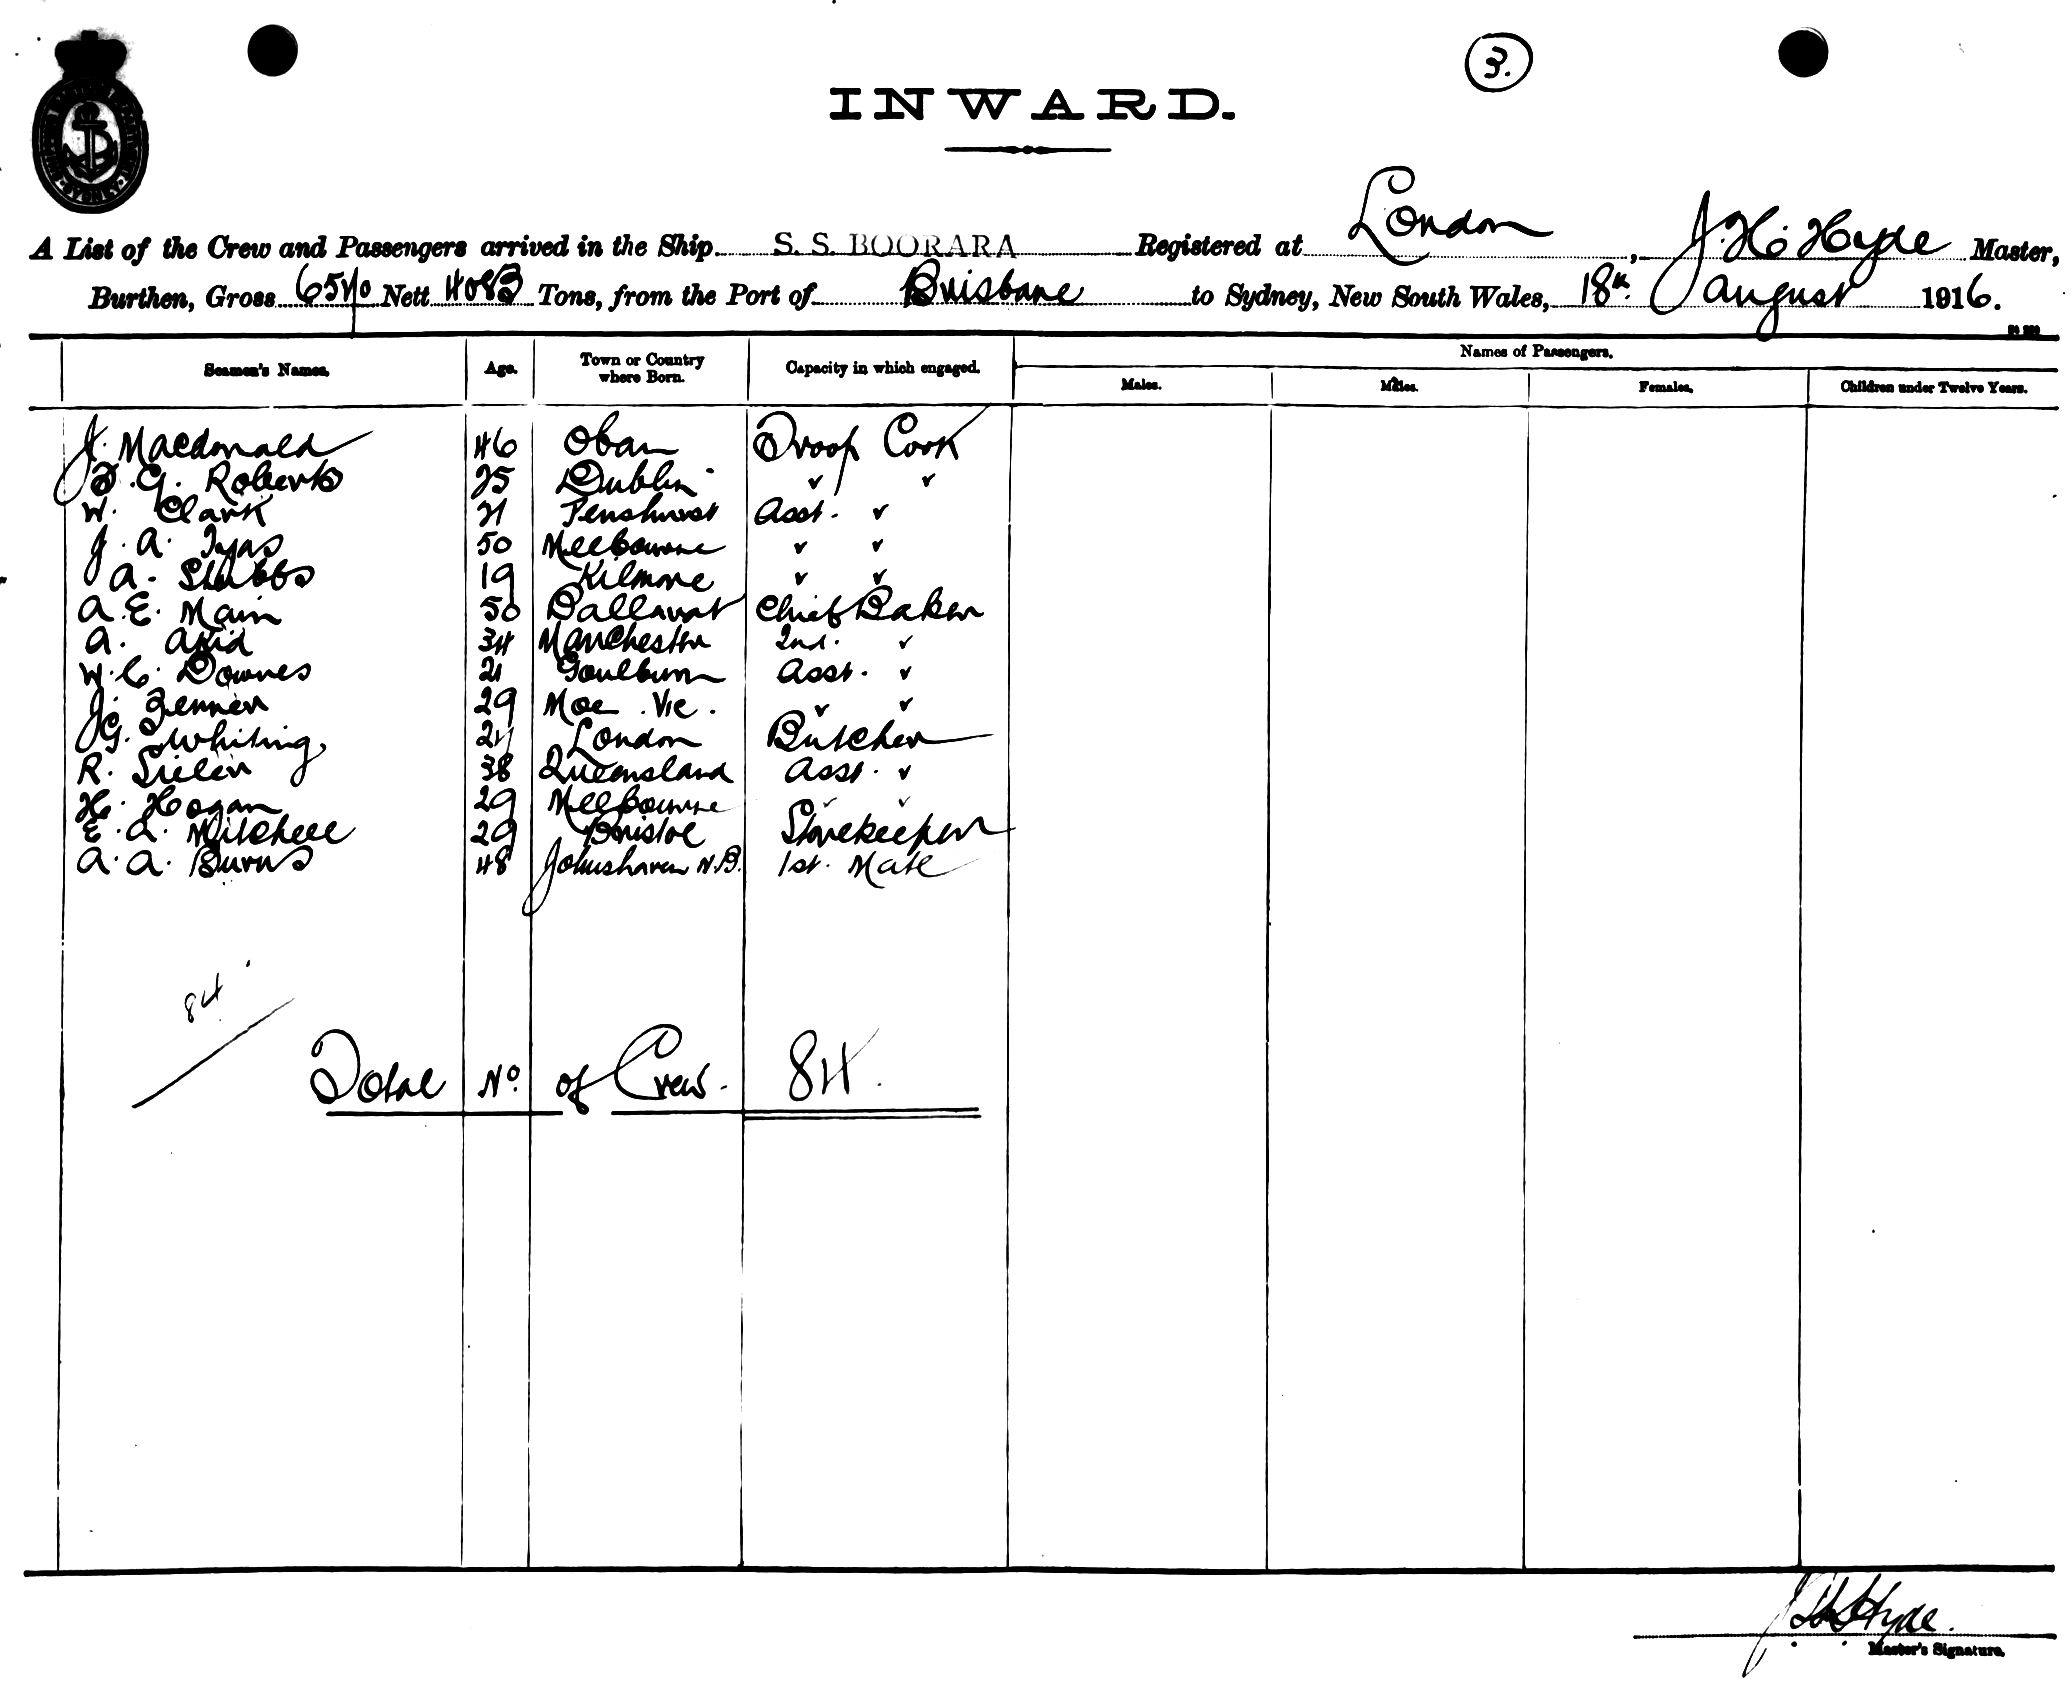 3.
INWARD.
A List of the Crew and Passengers arrived in the Ship S. S. BOORARA Registered at London, J. H. Hyde Master,
Burthen, Gross 6540 Nett 4083 Tons, from the Port of Brisbane to Sydney, New South Wales, 18th August 1916.
Names of Passengers.
Seamen's Names. Age. Town or Country where Born. Capacity in which engaged. Males. Males. Females. Children under Twelve Years.
J. Macdonald 46 Oban Troop Cook
G. Roberts 25 Dublin ✓ ✓
W. Clark 21 Penshurst Asst. ✓
J. A. Tyas 50 Melbourne ✓ ✓
A. Stubbs 19 Kilmore ✓ ✓
A. E. Main 50 Ballarat Chief Baker
A. Akid 34 Manchester 2nd. ✓
W. C. Downes 21 Goulburn Asst. ✓
J. 29 Moe Vic. ✓ ✓
G. Whiting 24 London Butcher
R. 38 Queensland Asst. ✓
H. Hogan 29 Melbourne ✓ ✓
E. A. Mitchell 29 Bristol Storekeeper
A. A. Burns 48 Johnshaven N.B. 1st. Mate
84
Total No. of Crew. 84.
J. H. Hyde.
Master's Signature.